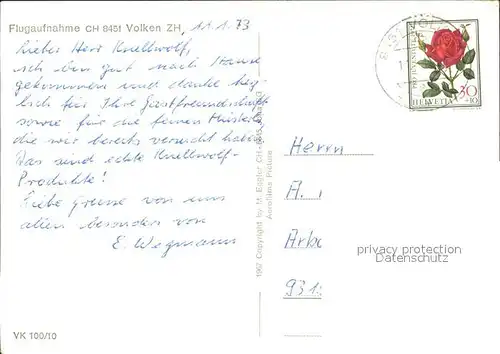 Flugaufnahme CH 8451 Volken ZH, 11.1.73
Lieber Herr Knellwolf,
ich bin gut nach Hause
gekommen und danke herz-
lich für Ihre Gastfreundschaft
sowie für die feinen Müsterli
die wir bereits versucht haben
Das sind echte Knellwolf-
Produkte!
Liebe Grüsse von uns
allen besonders von
E. Wegmann
VK 100/10
1967 Copyright by M. Eggler CH-
Aerofilms Picture
HELVETIA 30
+10
Herrn
A.
Arbo
931
privacy protection
Datenschutz